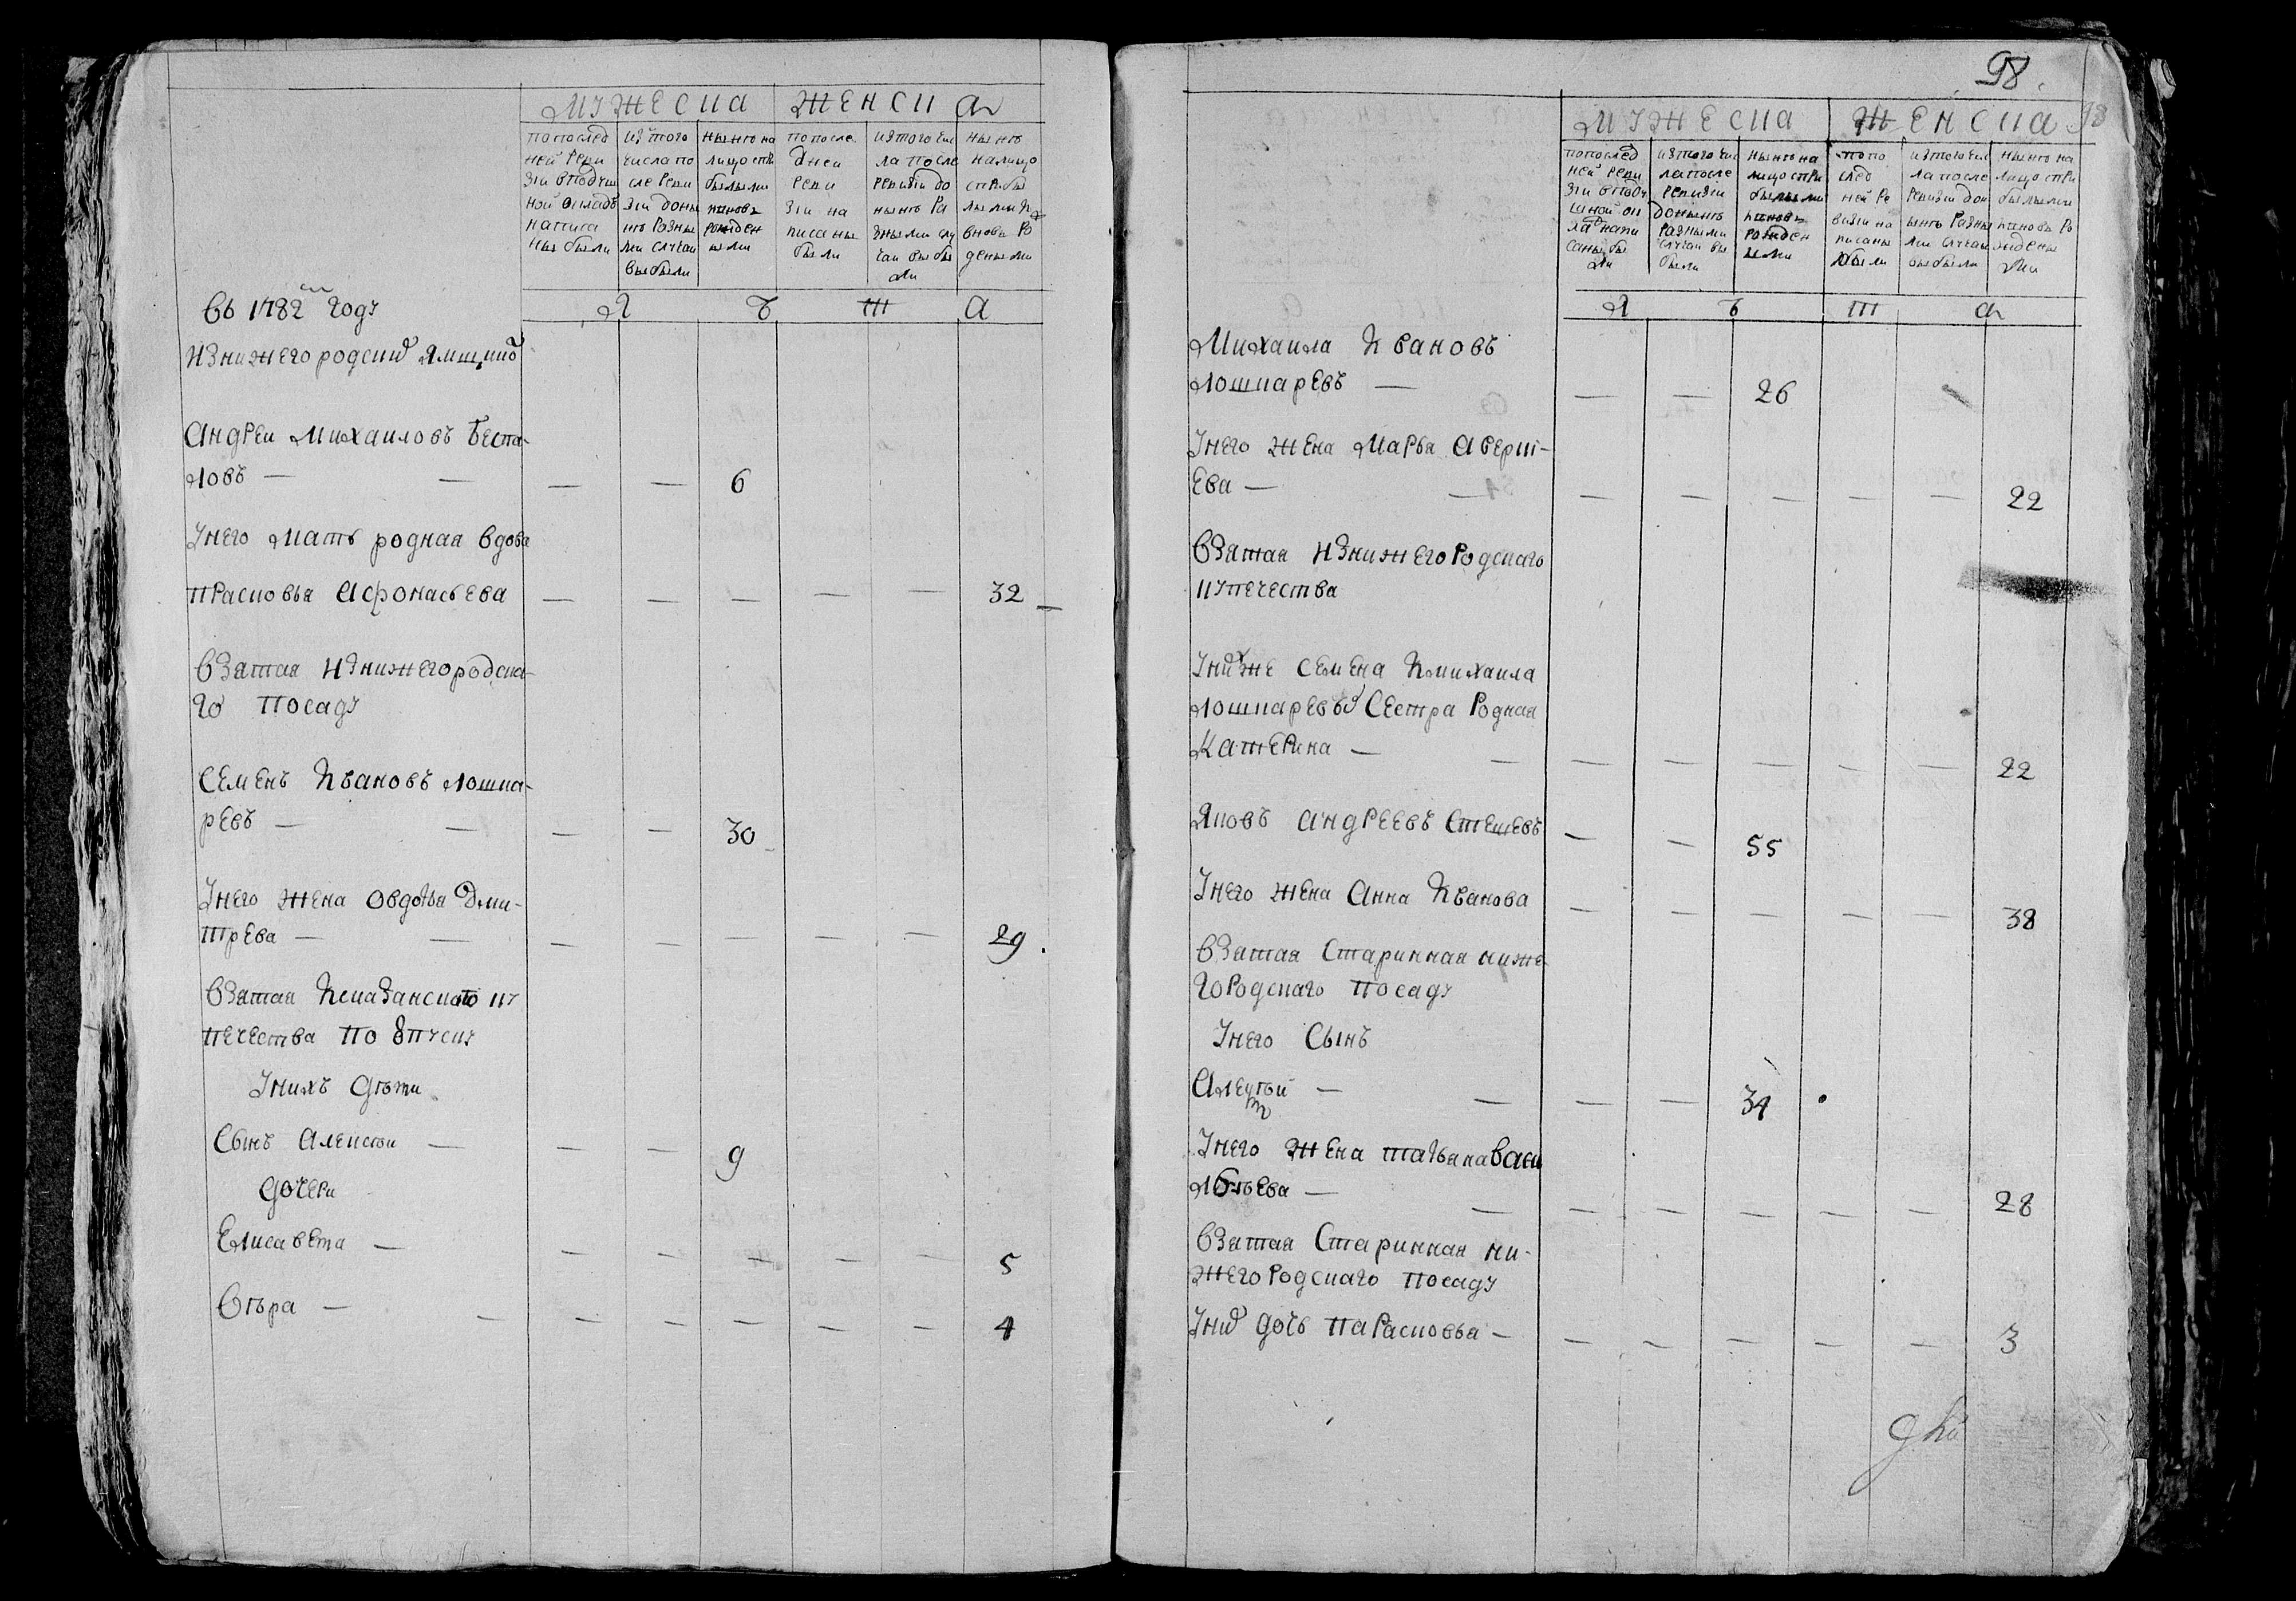 МУЖЕСКА ЖЕНСКА
попослед
ней Реви
зіи вподуш
ной окладъ
написа
ны были
изтого
числапо
сле Реви
зіи доны
нѣ Разны
ми случаи
выбыли
нынѣ на
лицо стѣ
былыми
ивновь
рожден
ыми
попосле
дней
Реви
зіи на
писаны
были
изтого чис
ла после
Ревизіи до
нынѣ Ра
зными слу
чаи выбы
ли
нынѣ
налицо
спрбы
лыми и
вновь Ро
деными
Л Ѣ Т А
въ 1782м Году
Изнижегородских Ямщиков
Андреи Михаиловъ Беспа-
ловъ — — — — 6
Унего мать родная вдова
праСковья Афонасьева — — — — — 32
Взятая Изнижегородска-
го посаду
Семенъ Ивановъ лошка-
ревъ — — — — 30
Унего жена Овдотья Дми-
трева — — — — — — — 29
Взятая Исказанского ку
печества по впуску
Унихъ дѣти
Сынъ Алексѣи — — — 9
дочери
Елисавета — — — — — — 5
Вѣра — — — — — — — 4
98.
98
МУЖЕСКА ЖЕНСКА
попослед
ней Реви
зіи вподу
шной ок
ла напи
саны бы
ли
изтого чис
лапосле
Ревизіи
донынѣ
Разными
случаи вы
были
нынѣ на
лицо спри
былыми
ивновь
Рожден
ыми
попо
след
ней Ре
визіи на
писаны
были
изтого чис
ла после
Ревизіи дон
ынѣ Разны
ми случаи
выбыли
нынѣ на
лицо спри
былыми
ивновь Ро
ждены
ми
Л Ѣ Т А
Михаила Ивановъ
лошкаревъ — — — 26
Унего жена Марья Аверкі-
ева — — — — — — — 22
Взятая Изнижегородскаго
купечества
Унихже Семена Имихаила
лошкаревых Сестра Родная
Катерина — — — — — — — 22
Яковъ Андреевъ Стешевъ — — 55
Унего жена Анна Иванова — — — — — 38
Взятая Старинная ниже-
городскаго посаду
Унего Сынъ
Алексѣй — — — — 34
Унего жена татьяна Васи
льева — — — — — — — 28
Взятая Старинная ни-
жегородскаго посаду
Уних дочь параСковья — — — — — — 3